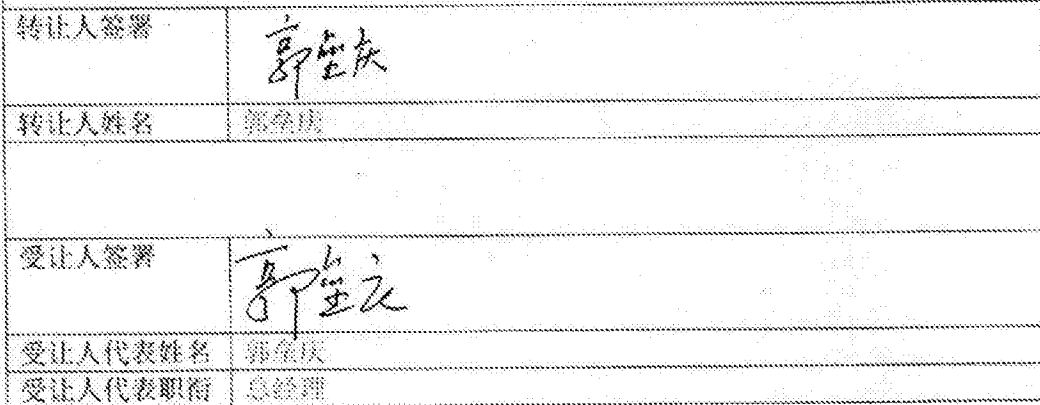 转让人签署 郭垒庆
转让人姓名 郭垒庆
受让人签署 郭垒庆
受让人代表姓名 郭垒庆
受让人代表职衔 总经理